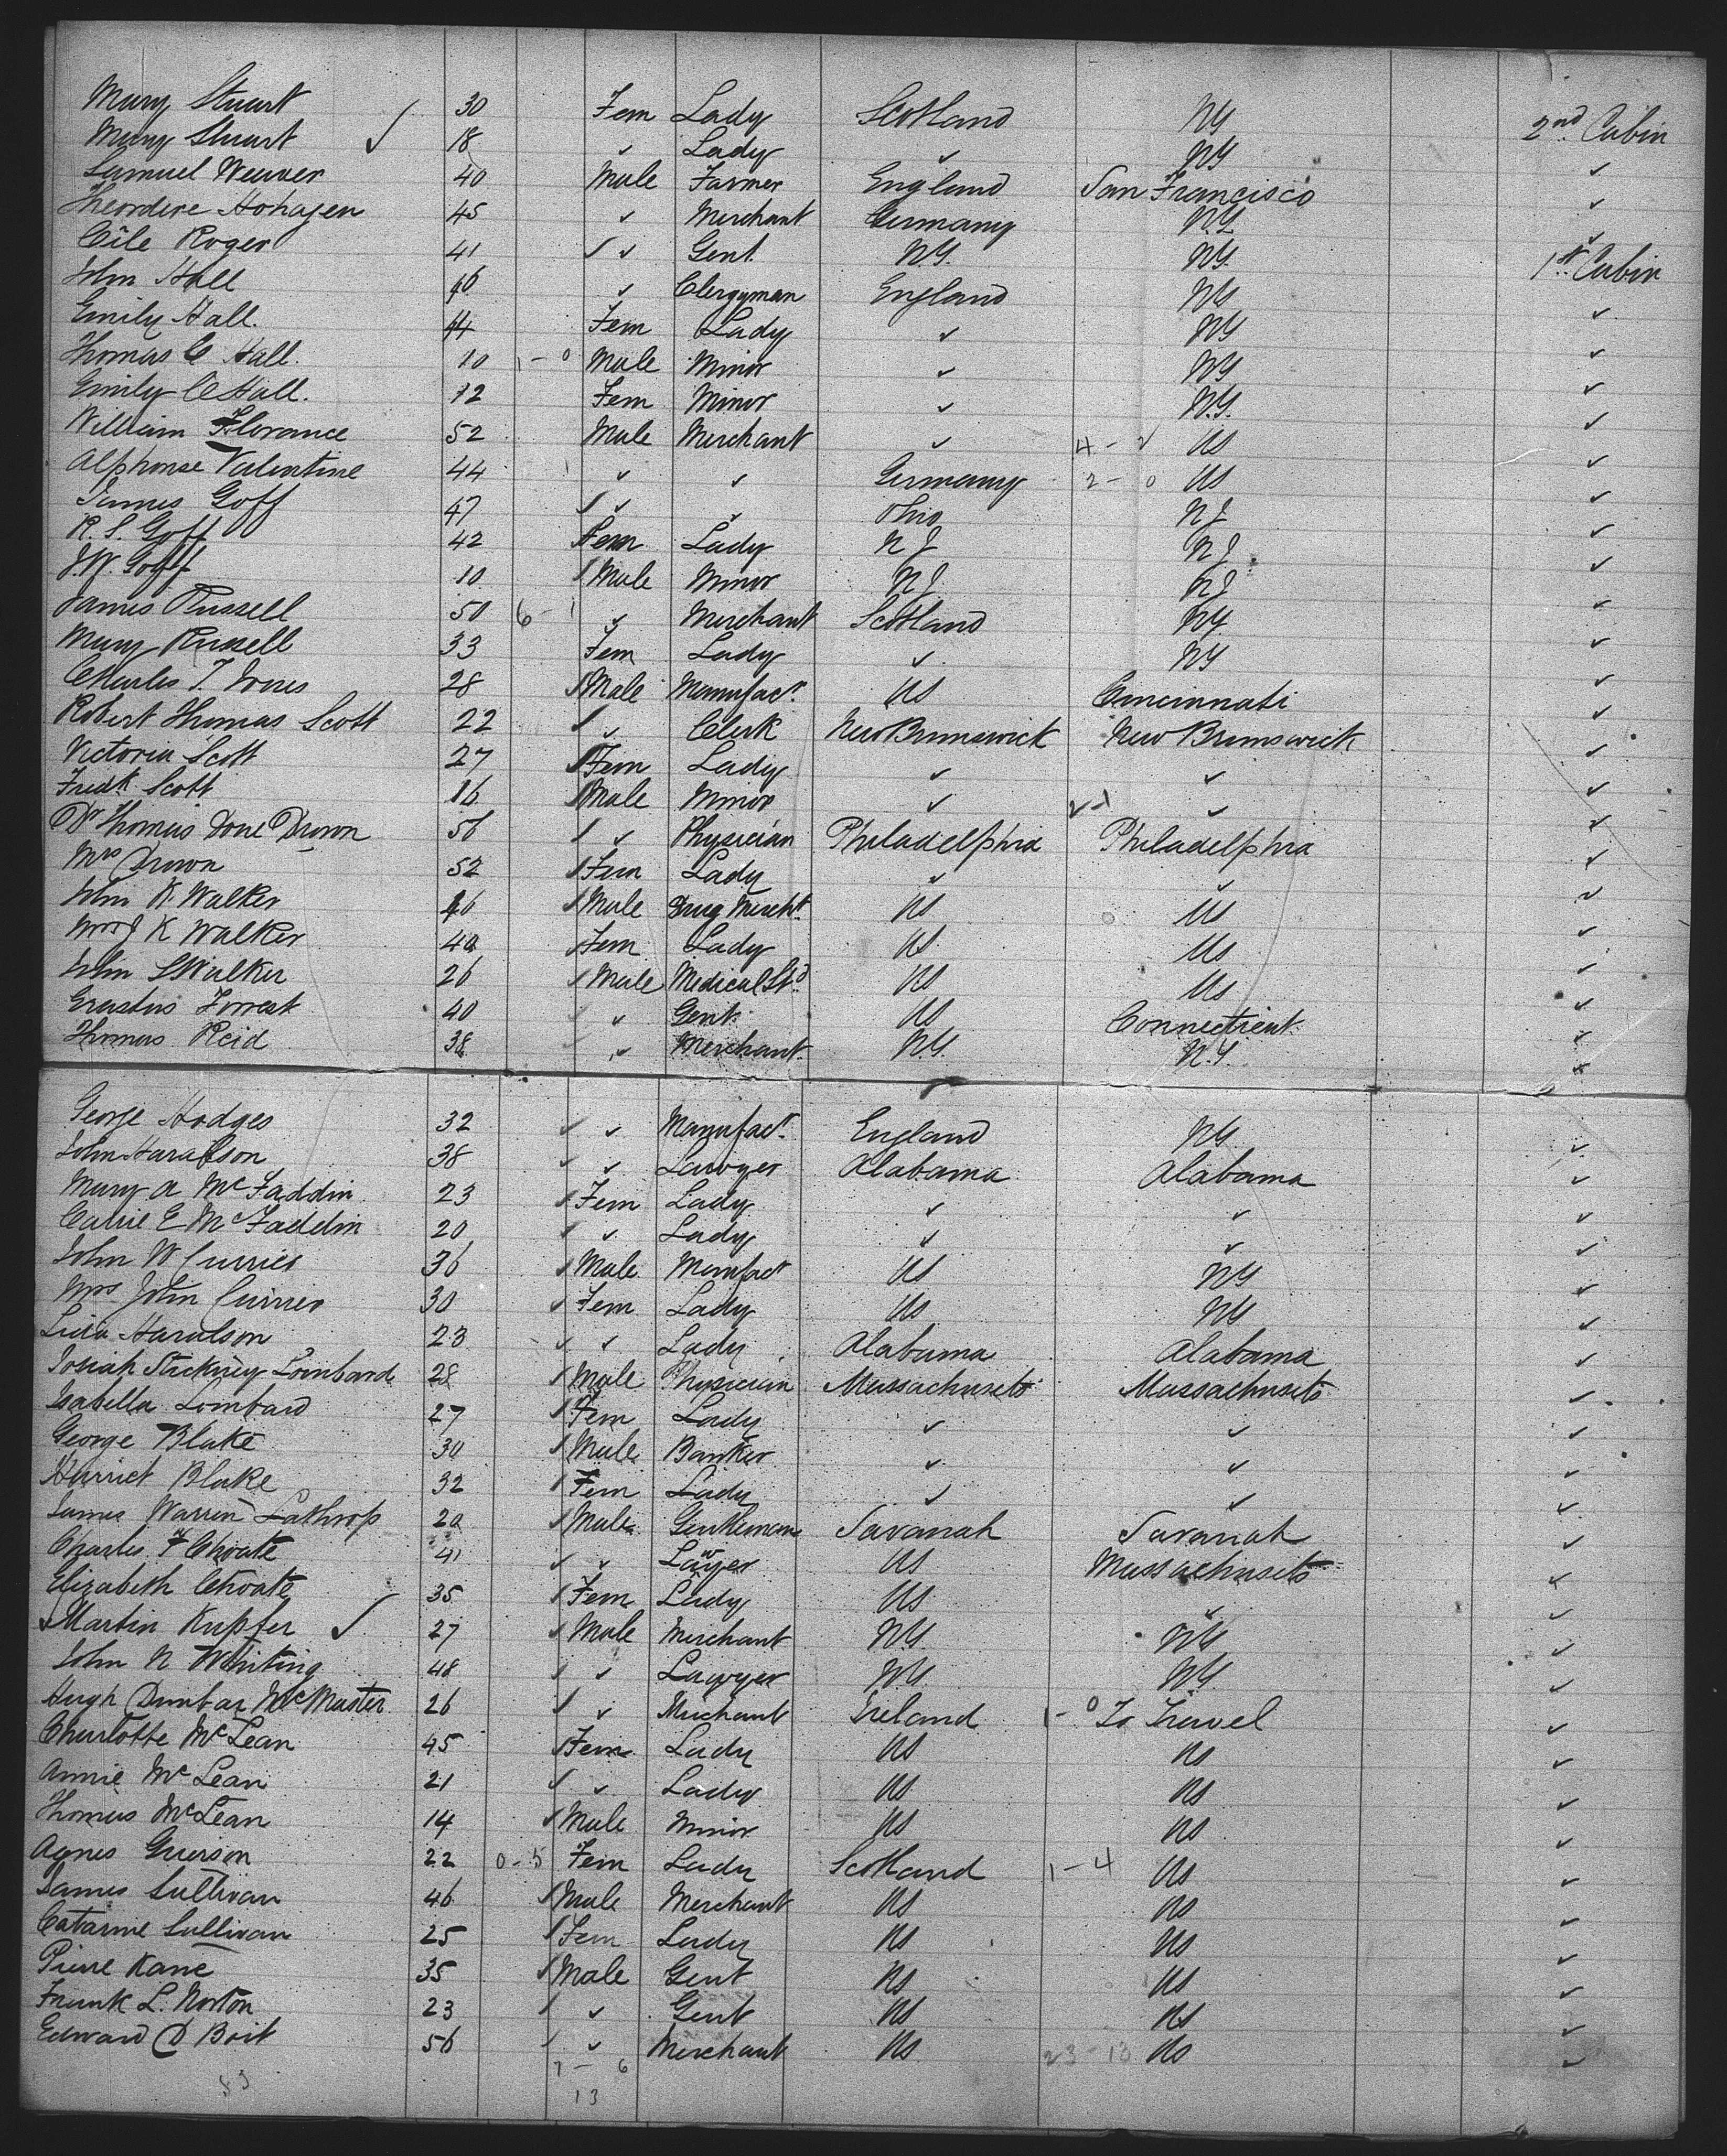 Mary Stuart 30 Fem Lady Scotland NY 2nd Cabin
Mary Stuart ✓ 18 ✓ Lady ✓ NY ✓
Samuel Weaver 40 Male Farmer England San Francisco ✓
Theordire Hohagen 45 ✓ Merchant Germany N.Y. ✓
Roger 41 ✓ ✓ Gent. N.Y. NY. 1st Cabin
John Hall 46 ✓ Clergyman England NY ✓
Emily Hall. 44 Fem Lady ✓ NY ✓
Thomas C Hall. 10 1 - 0 Male Minor ✓ NY ✓
Emily C Hall. 12 Fem Minor ✓ N.Y. ✓
William Florance 52 Male Merchant ✓ US ✓
Alphonse Valentine 44 ✓ ✓ Germany 2 - 0 US ✓
James Goff 47 ✓ ✓ ✓ Ohio NJ ✓
R. S. Goff 42 Fem Lady NJ NJ ✓
J. W. Goff 10 Male Minor NJ NJ ✓
James Russell 50 6 - 1 ✓ Merchant Scotland NY ✓
Mary Russell 33 Fem Lady ✓ NY ✓
Charles T. Jones 28 Male Manufacr. US Cincinnati ✓
Robert Thomas Scott 22 ✓ Clerk New Brunswick New Brunswick ✓
Victoria Scott 27 Fem Lady ✓ ✓ ✓
Fredk. Scott 16 Male Minor ✓ ✓ ✓
Dr Thomas Done Drown 56 ✓ Physician Philadelphia Philadelphia ✓
Mrs Drown 52 Fem Lady ✓ ✓ ✓
John K Walker 46 Male Drug Mercht. US US ✓
Mrs J K Walker 40 Fem Lady US US ✓
John S Walker 26 Male Medical Std. US US ✓
Erastus Forrest 40 ✓ Gent. US Connecticut ✓
Thomas Reid 38 ✓ Merchant N.Y. N.Y. ✓
George Hodges 32 ✓ ✓ Manufacr. England NY ✓
John Haralson 38 ✓ ✓ Lawyer Alabama Alabama ✓
Mary A McFaddin 23 Fem Lady ✓ ✓ ✓
Callie E McFaddin 20 ✓ Lady ✓ ✓ ✓
John W Currier 36 Male Manfact US NY ✓
Mrs John Currier 30 Fem Lady US NY ✓
Lida Haralson 23 ✓ ✓ Lady Alabama Alabama ✓
Josiah Stickney Lombard 28 Male Physician Massachusets Massachusets ✓
Isabella Lombard 27 Fem Lady ✓ ✓ ✓
George Blake 30 Male Banker ✓ ✓ ✓
Harriet Blake 32 Fem Lady ✓ ✓ ✓
James Warren Lathrop 20 Male Gentleman Savanah Savanah ✓
Charles F Choate 41 ✓ ✓ Lawyer US Massachusets ✓
Elizabeth Choate 35 Fem Lady US ✓ ✓
Martin Kupfer ✓ 27 Male Merchant N.Y. NY ✓
John N Whiting 48 ✓ Lawyer NY. NY ✓
Hugh Dunbar McMaster 26 ✓ Merchant Ireland 1 - 0 To Travel ✓
Charlotte McLean 45 Fem Lady US US ✓
Annie McLean 21 ✓ Lady US US ✓
Thomas McLean 14 Male Minor US US ✓
Agnes Grierson 22 0 - 5 Fem Lady Scotland 1 - 4 US ✓
James Sullivan 46 Male Merchant US US ✓
Catarine Sullivan 25 Fem Lady US US ✓
Pierre Kane 35 Male Gent US US ✓
Frank L. Norton 23 ✓ Gent US US ✓
Edward D Boit 56 ✓ Merchant US 23 - 13 US ✓
7 - 6
13